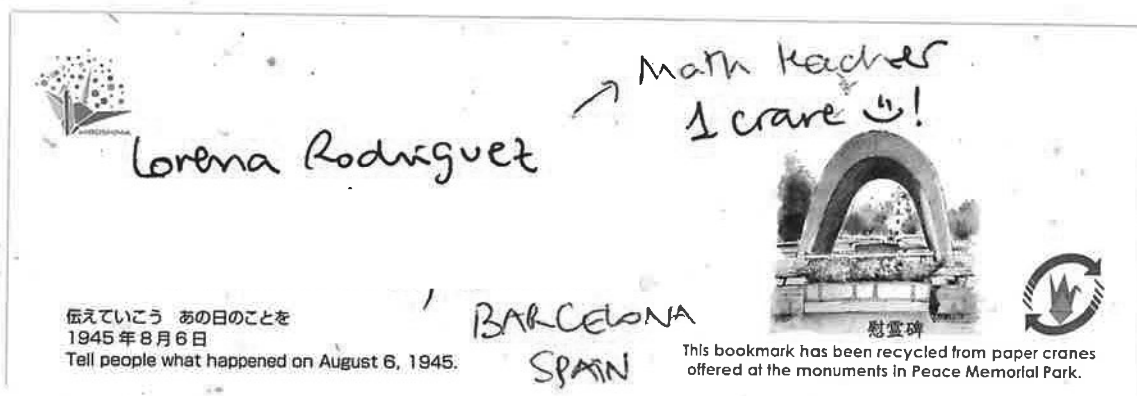 Math teacher
1 crane !
HIROSHIMA
Lorena Rodriguez
伝えていこう あの日のことを
1945年8月6日
Tell people what happened on August 6, 1945.
BARCELONA
SPAIN
慰霊碑
This bookmark has been recycled from paper cranes
offered at the monuments in Peace Memorial Park.